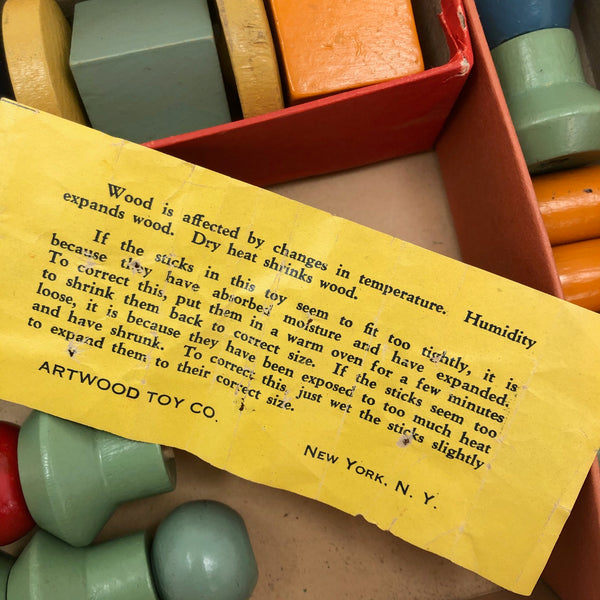 Wood is affected by changes in temperature. Humidity
expands wood. Dry heat shrinks wood.
If the sticks in this toy seem to fit too tightly, it is
because they have absorbed moisture and have expanded.
To correct this, put them in a warm oven for a few minutes
to shrink them back to correct size. If the sticks seem too
loose, it is because they have been exposed to too much heat
and have shrunk. To correct this, just wet the sticks slightly
to expand them to their correct size.
ARTWOOD TOY CO.
NEW YORK, N. Y.